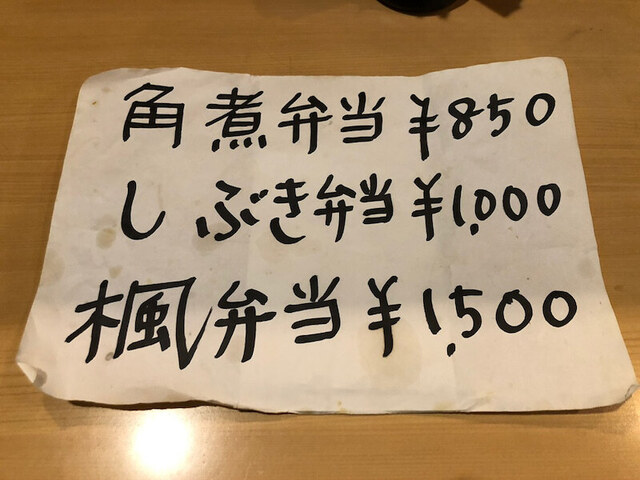 角煮弁当 ¥850
しぶき弁当 ¥1,000
楓弁当 ¥1,500